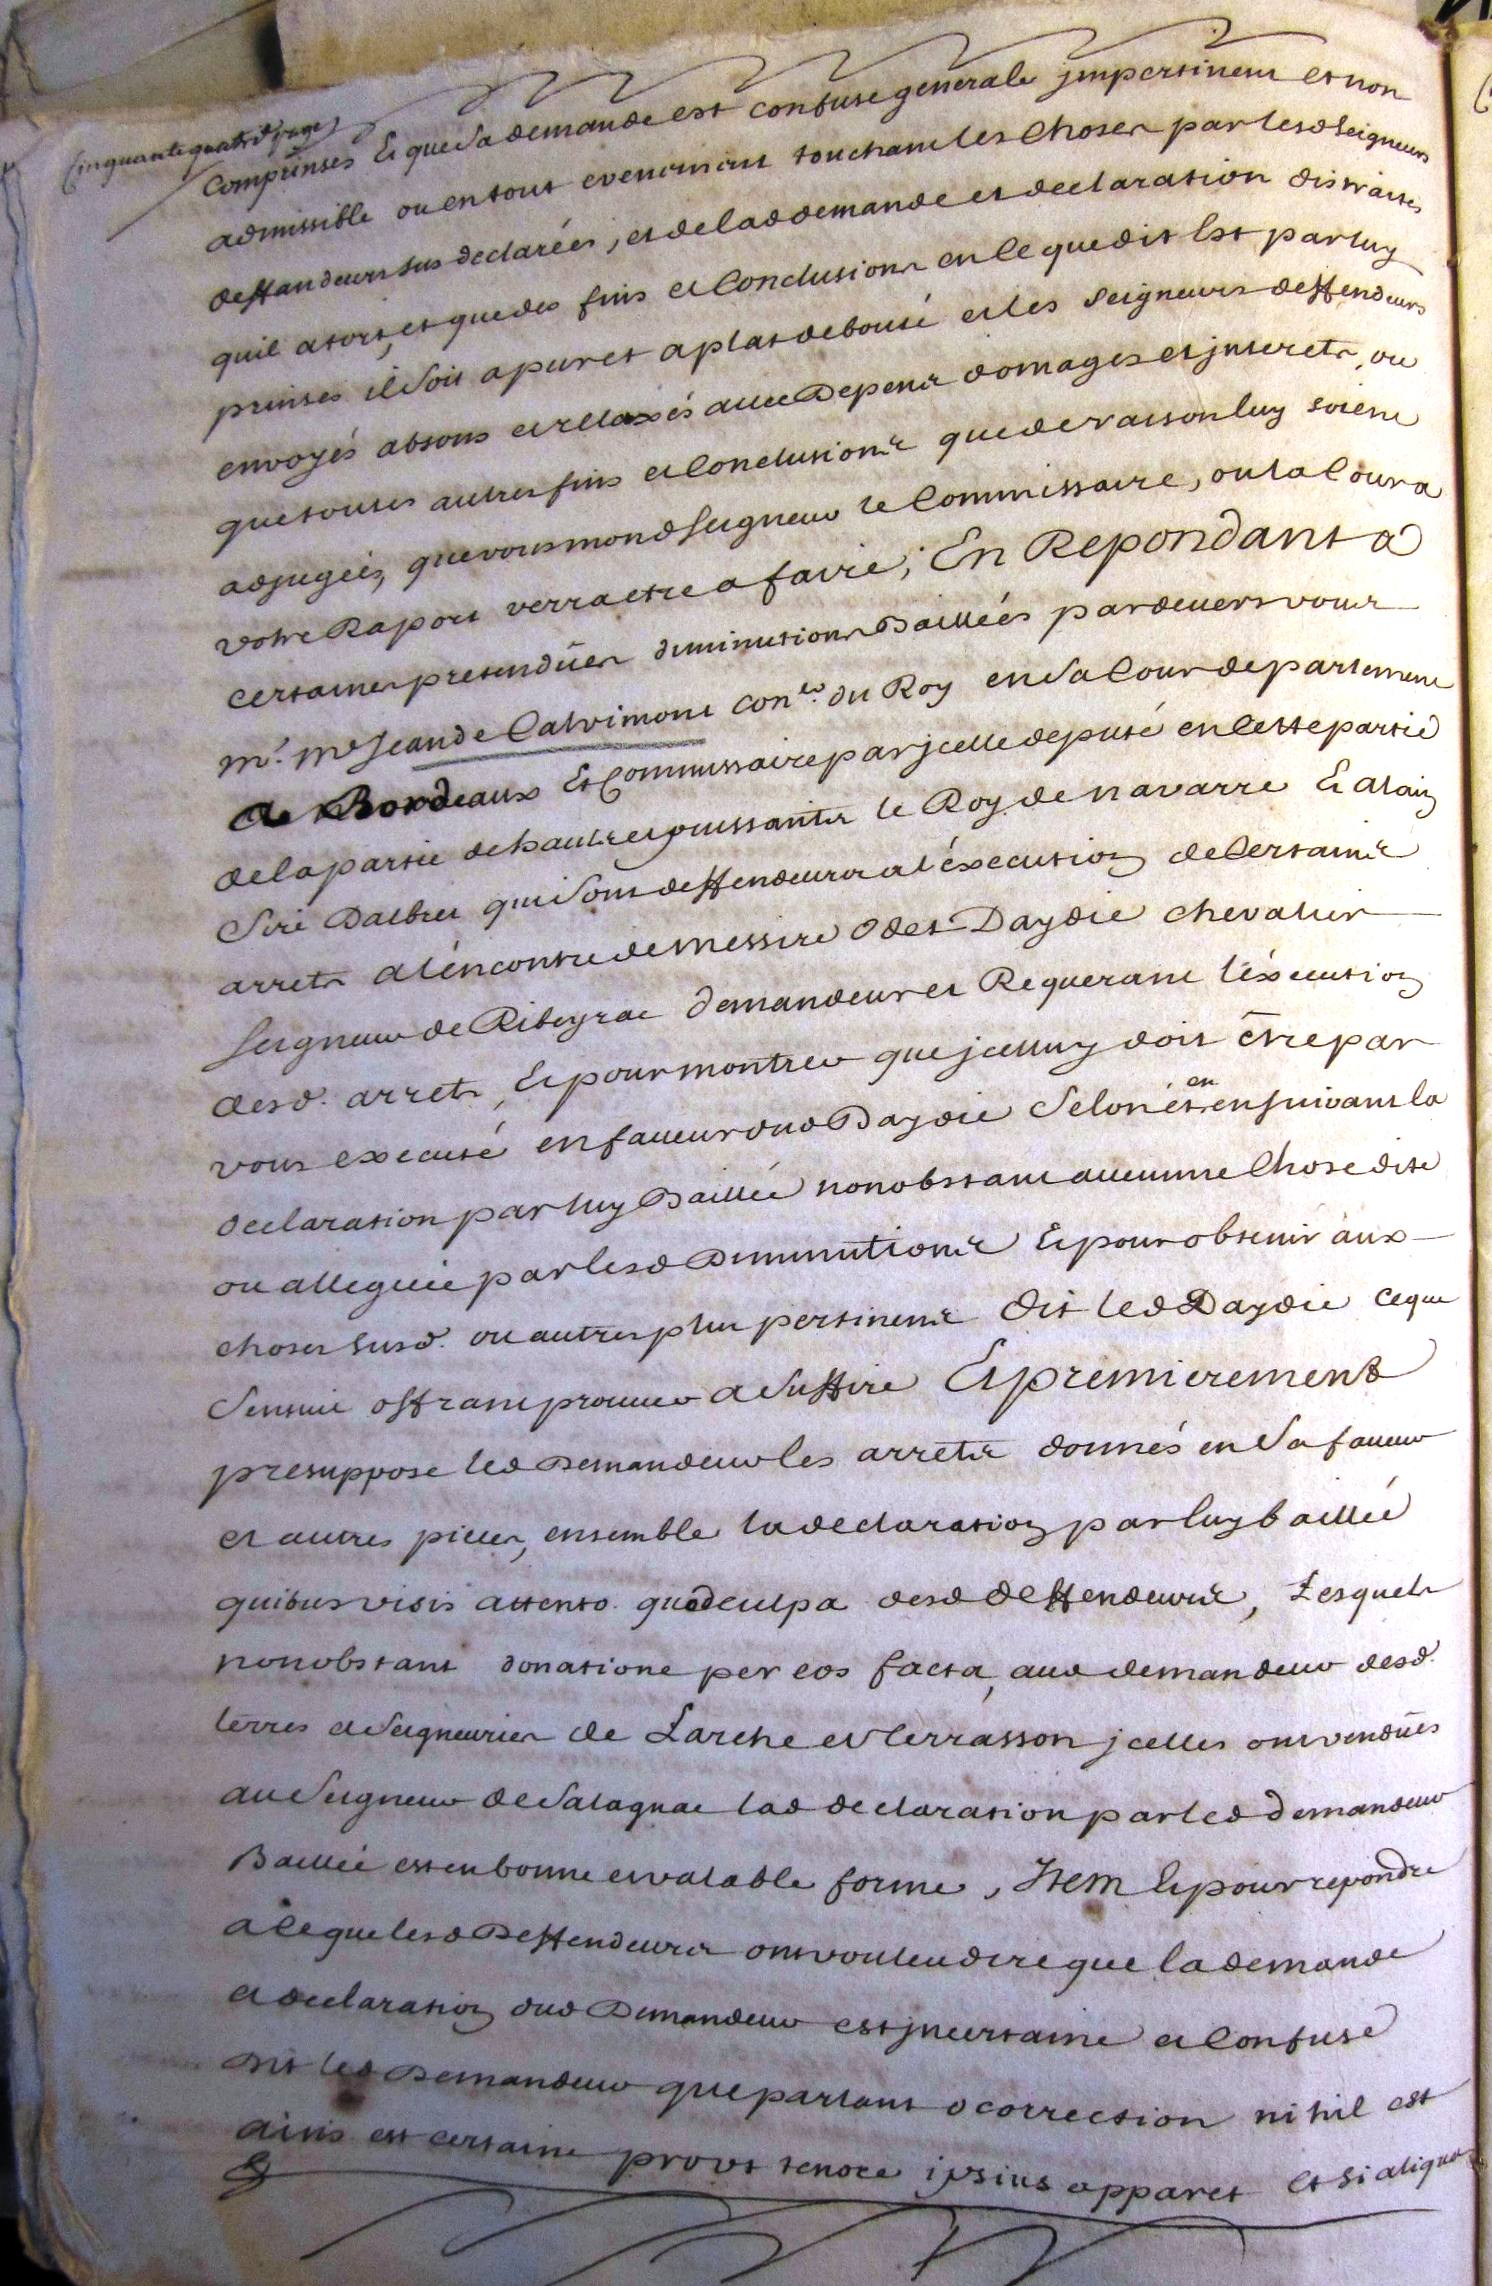 Cinquante quatre page
Comprinses Et que sa demande est confuse generale jmpertinent et non
admissible ou en tout evenement touchant les Choses par lesd Seigneurs
deffandeurs sus declarées, et de lad demande et declaration distraites
quil a tort, et que des fins et Conclusions en Ce que dit Est par luy
prinses il soit a pur et a plat debouté et les Seigneurs deffendeurs
envoyés absous et relaxés avec Depens domages et jnterets, ou
que toutes autres fins et Conclusions que de raison luy soient
adjugées, que vous mond Seigneur le Commissaire, ou la Cour a
votre Raport verra etre a faire; En Repondant a
certaines pretendües diminutions Baillées pardevers vous
mr. me Jean de Calvimont coner. du Roy en sa Cour de parlement
de Bordeaux Et Commissaire par jcelle deputé en Cette partie
de la partie de hauts et puissants le Roy de navarre Et alain
Sire Dalbret qui sont deffendeurs a l'éxecution de Certains
arrets a l'éncontre de Messire Odet Daydie chevalier
Seigneur de Ribeyrac demandeur et Requerant l'éxecution
desd. arrets, Et pour montrer que jcelluy doit être par
vous executé en faveur dud Daydie Selon et en ensuivant la
declaration par luy Baillée nonobstant aucunne Chose dite
ou alleguée par lesd Diminutions Et pour obtenir aux
choses susd. ou autres plus pertinens Dit led Daydie ce que
Sensuit offrant prouver a Suffire Et premierement
presuppose led Demandeur les arrets donnés en sa faveur
et autres pieces, ensemble la declaration par luy baillée
quibus visis attento quod culpa desd deffendeurs, Lesquels
nonobstant donatione per eos facta, aud demandeur desd.
terres et Seigneuries de Larche et Terrasson jcelles ont vendües
au Seigneur de Salagnac lad declaration par led demandeur
Baillée est en bonne et valable forme, Item Et pour repondre
a Ce que lesd Deffendeurs ont voulu dire que la demande
et declaration dud Demandeur est jncertaine et Confuse
Dit led Demandeur que parlant o correction nihil est
ains est certaine prout tenore ipsius apparet Et Si aliqua